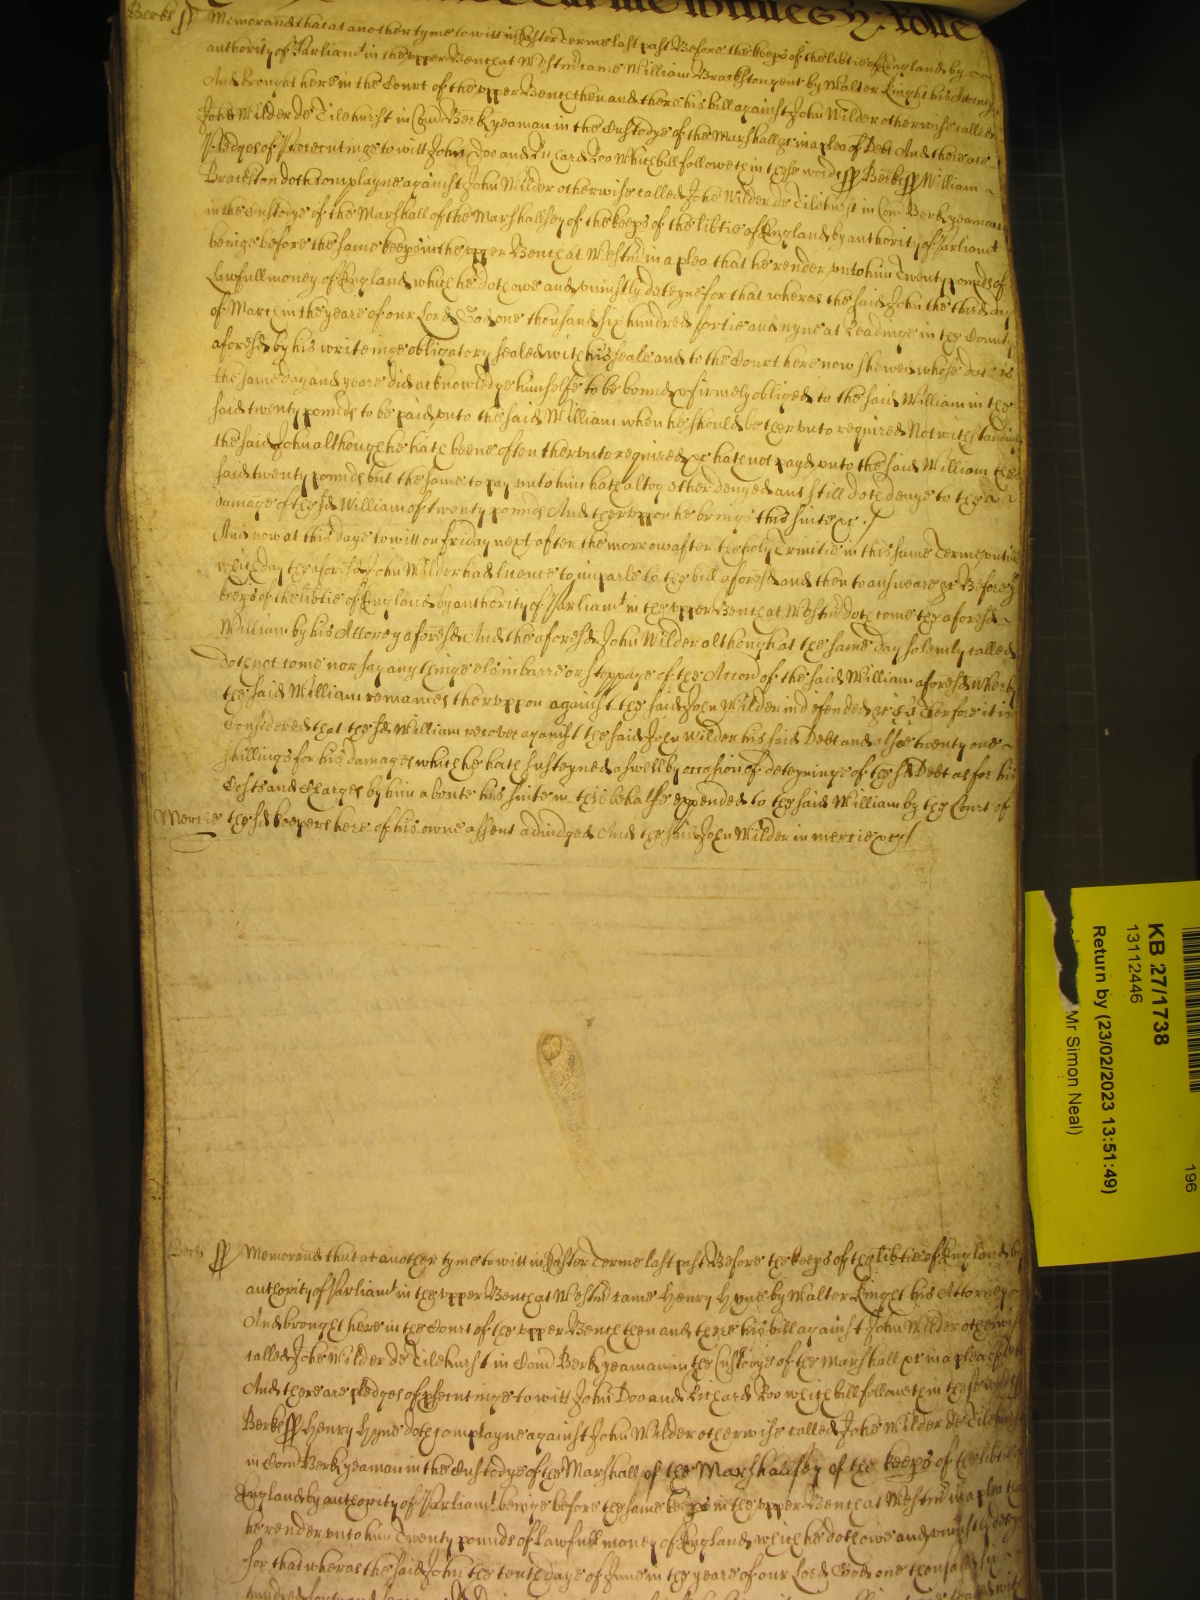 Witnes H: Rolle
Berks ss Memorand that at another tyme to witt in Easter Terme last past Before the keeps of the libtie of England by
authority of Parliamt in the upper Bench at Westmr came William Brackston gent by Walter Linght his Attorney
And brought here in the Court of the upper Bench then and there his bill against John Wilder otherwise called
John Wilder de Tilehurst in Com Berk yeaman in the Custodye of the Marshall &c in a plea of Debt And there are
Pledges of Prosecutinge to witt John Doo and Richard Roo Which bill followeth in these wordes ss Berks ss William
Brackston doth complayne against John Wilder otherwise called John Wilder de Tilehurst in Com Berk yeaman
in the Custodye of the Marshall of the Marshallsey of the keeps of the libtie of England by authority of Parliamt
beinge before the same keeps in the upper Bench at Westmr in a plea that he render unto him Twenty pounds of
Lawfull money of England which he doth owe and uniustly deteyne for that wheras the said John the third day
of March in the yeare of our Lord God one thousand six hundred fortie and nyne at Readinge in the County
aforesd by his writeinge obligatory sealed with his seale and to the Court here now shewed whose date is
the same day and yeare did acknowledge himselfe to be bound & firmely obliged to the said William in the
said twenty pounds to be paid unto the said William when he should be therunto required Notwithstandinge
the said John although he hath beene often therunto required &c hath not payd unto the said William the
said twenty pounds but the same to pay unto him hath altogether denyed and still doth denye to the
damage of the sd William of twenty pounds And therupon he brings this suite &c
And now at this daye to witt on Friday next after the morrow after the holy Trinitie in this same Terme untill
which day the aforesd John Wilder had licence to imparle to the bill aforesd and then to answeare &c Before ye
keeps of the libtie of England by authority of Parliamt in the upper Bench at Westmr doth come the aforesd
William by his Attorney aforesd And the aforesd John Wilder although at the same day solemly called
doth not come nor say any thinge els in barre or stoppage of the Accon of the said William aforesd wherby
the said William remaines therupon against the said John Wilder indefended &c Therfore it is
Considered that the sd William recover against the said John Wilder his said Debt and alsoe twenty one
shillings for his damages which he hath susteyned aswell by occasion of deteyninge of the sd Debt as for his
Costs and Charges by him aboute his suite in this behalfe expended to the said William by the Court of
Mercie the sd keepers here of his owne assent adiudged And the said John Wilder in mercie &c
Berks ss Memorand that at another tyme to witt in Easter Terme last past Before the keeps of the libtie of England by
authority of Parliamt in the upper Bench at Westmr came Henry Hyne by Walter Linght his Attorney
And brought here in the Court of the upper Bench then and there his bill against John Wilder otherwise
called John Wilder de Tilehurst in Com Berk yeaman in the Custodye of the Marshall &c in a plea of Debt
And there are pledges of psecutinge to witt John Doo and Richard Roo which bill followeth in these words ss
Berks ss Henry Hyne doth complayne against John Wilder otherwise called John Wilder de Tilehurst
in Com Berk yeaman in the Custodye of the Marshall of the Marshallsey of the keeps of the libtie
England by authority of Parliamt beinge before the same keeps in the upper Bench at Westmr in a plea that
he render unto him Twenty pounds of Lawfull money of England which he doth owe and uniustly deteyne
for that wheras the said John the tenth daye of June in the yeare of our Lord God one thousand six
hundred forty and
KB 27/1738
13112446
Return by (23/02/2023 13:51:49)
Mr Simon Neal)
196